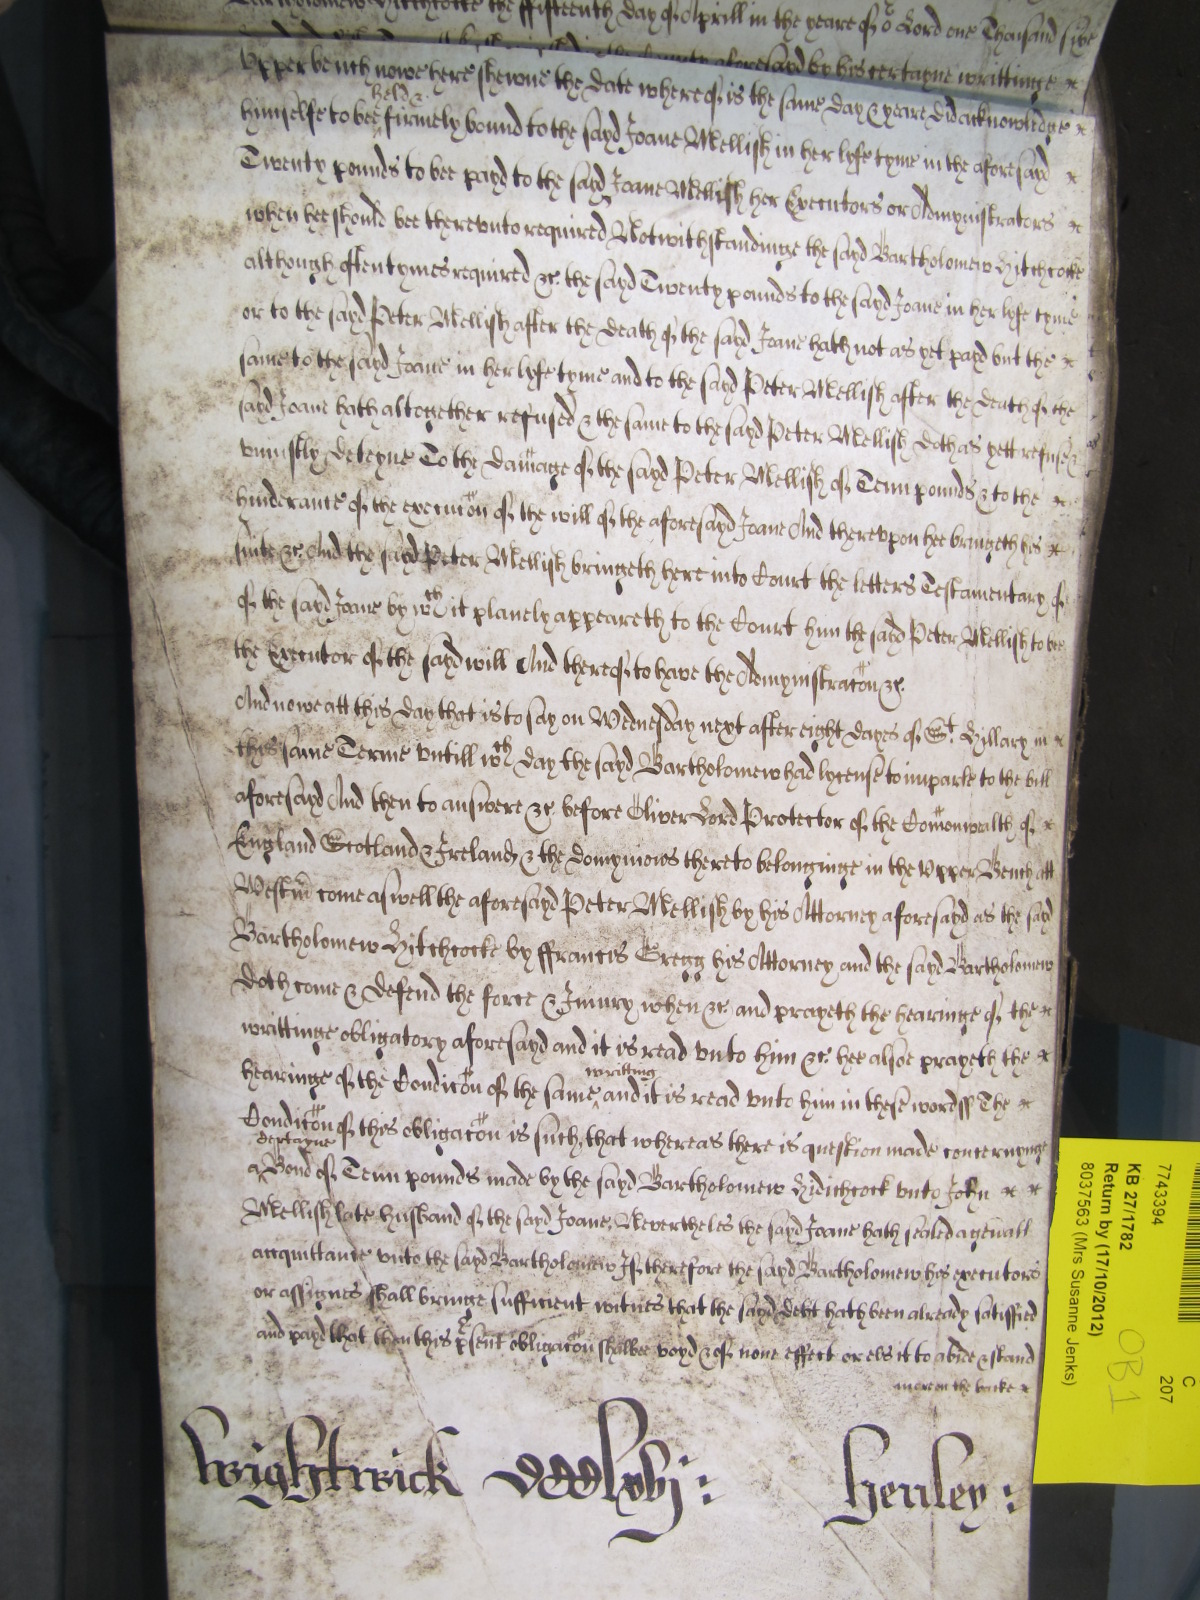 Bartholomew Hitchcocke the ffifteenth day of Aprill in the yeare of oʳ Lord one Thousand sixe
aforesayd by his certayne writtinge
Vpper bench nowe here shewne the date whereof is the same day & yeare did acknowledge
himselfe to bee held & firmely bound to the sayd Joane Mellish in her lyfe tyme in the aforesayd
Twenty pounds to bee payd to the sayd Joane Mellish her Executors or Admynistrators
when hee should bee therevnto required Notwithstandinge the sayd Bartholomew Hitchcocke
although often tymes required &c. the sayd Twenty pounds to the sayd Joane in her lyfe tyme
or to the sayd Peter Mellish after the death of the sayd Joane hath not as yet payd but the
same to the sayd Joane in her lyfe tyme and to the sayd Peter Mellish after the death of the
sayd Joane hath altogether refused & the same to the sayd Peter Mellish doth as yett refuse &
vniustly deteyne To the damage of the sayd Peter Mellish of Tenn pounds & to the
hinderance of the execucon of the will of the aforesayd Joane And therevpon hee bringeth his
suite &c. And the sayd Peter Mellish bringeth here into Court the letters Testamentary of
of the sayd Joane by wᵗʰ it planely appeareth to the Court him the sayd Peter Mellish to bee
the Executor of the sayd will And thereof to have the Admynistracon &c.
And nowe att this day that is to say on Wednesday next after eight dayes of Sᵗ. Hillary in
this same Terme vntill wᵗʰ day the sayd Bartholomew had lycense to imparle to the bill
aforesayd And then to answere &c. before Oliver Lord Protector of the Comonwealth of
England Scotland & Ireland & the domynions thereto belonginge in the Vpper Bench att
Westm̄ come aswell the aforesayd Peter Mellish by his Attorney aforesayd as the sayd
Bartholomew Hitchcocke by ffrancis Gregg his Attorney and the sayd Bartholomew
doth come & defend the force & Iniury when &c. and prayeth the hearinge of the
writtinge obligatory aforesayd and it is read vnto him &c. hee alsoe prayeth the
hearinge of the Condicon of the same writting and it is read vnto him in these words ss The
Condicon of this obligacon is such, that whereas there is question made concernynge
a certayne Bond of Tenn pounds made by the sayd Bartholomew Hidichcock vnto John
Mellish late husband of the sayd Joane, Nevertheles the sayd Joane hath sealed a gen̄all
acquittance vnto the sayd Bartholomew If therefore the sayd Bartholomew his executors
or assignes shall bringe sufficient witnes that the sayd debt hath been already satisfied
and payd that then this p̄sent obligacon shalbee voyd & of none effect or els it to abide & stand
more on the backe
Wightwick Oddyly: Henley:
7743394
C
207
KB 27/1782
Return by (17/10/2012)
8037563 (Mrs Susanne Jenks)
OB1